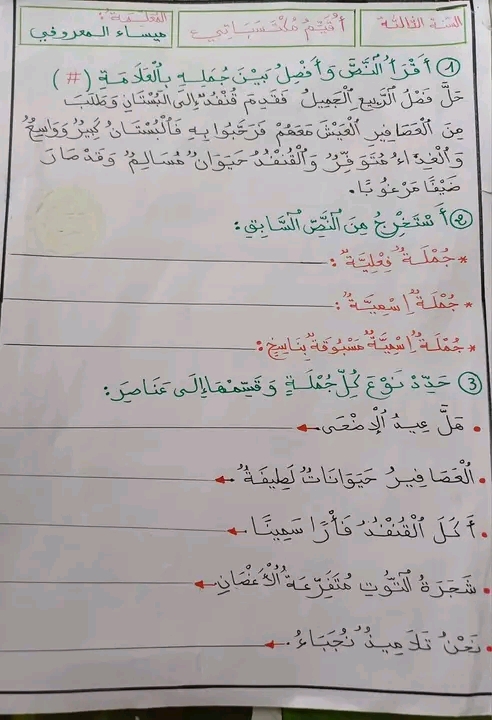 السنة الثالثة
أقيّم مكتسباتي
المعلمة:
ميساء المعروفي
① أَقْرَأُ النَّصَّ وَ أَفْصِلُ بَيْنَ جُمَلِهِ بِالْعَلَامَةِ (#)
حَلَّ فَصْلُ الرَّبِيعِ الْجَمِيلُ فَقَدِمَ قُنْفُذٌ إِلَى الْبُسْتَانِ وَطَلَبَ
مِنَ الْعَصَافِيرِ الْعَيْشَ مَعَهُمْ فَرَحَّبُوا بِهِ فَالْبُسْتَانُ كَبِيرٌ وَوَاسِعٌ
وَالْغِذَاءُ مُتَوَفِّرٌ وَالْقُنْفُذُ حَيَوَانٌ مُسَالِمٌ وَقَدْ صَارَ
ضَيْفًا مَرْغُوبًا.
② أَسْتَخْرِجُ مِنَ النَّصِّ السَّابِقِ:
* جُمْلَةٌ فِعْلِيَّةٌ:
* جُمْلَةٌ اِسْمِيَّةٌ:
* جُمْلَةٌ اِسْمِيَّةٌ مَسْبُوقَةٌ بِنَاسِخٍ:
③ حَدِّدْ نَوْعَ كُلِّ جُمْلَةٍ وَقَسِّمْهَا إِلَى عَنَاصِرَ:
• هَلَّ عِيدُ الْإِضْحَى
• الْعَصَافِيرُ حَيَوَانَاتٌ لَطِيفَةٌ
• أَكَلَ الْقُنْفُذُ فَأْرًا سَمِينًا
• شَجَرَةُ التُّوتِ مُتَفَرِّعَةُ الْأَغْصَانِ
• نَحْنُ تَلَامِيذٌ نُجَبَاءُ.